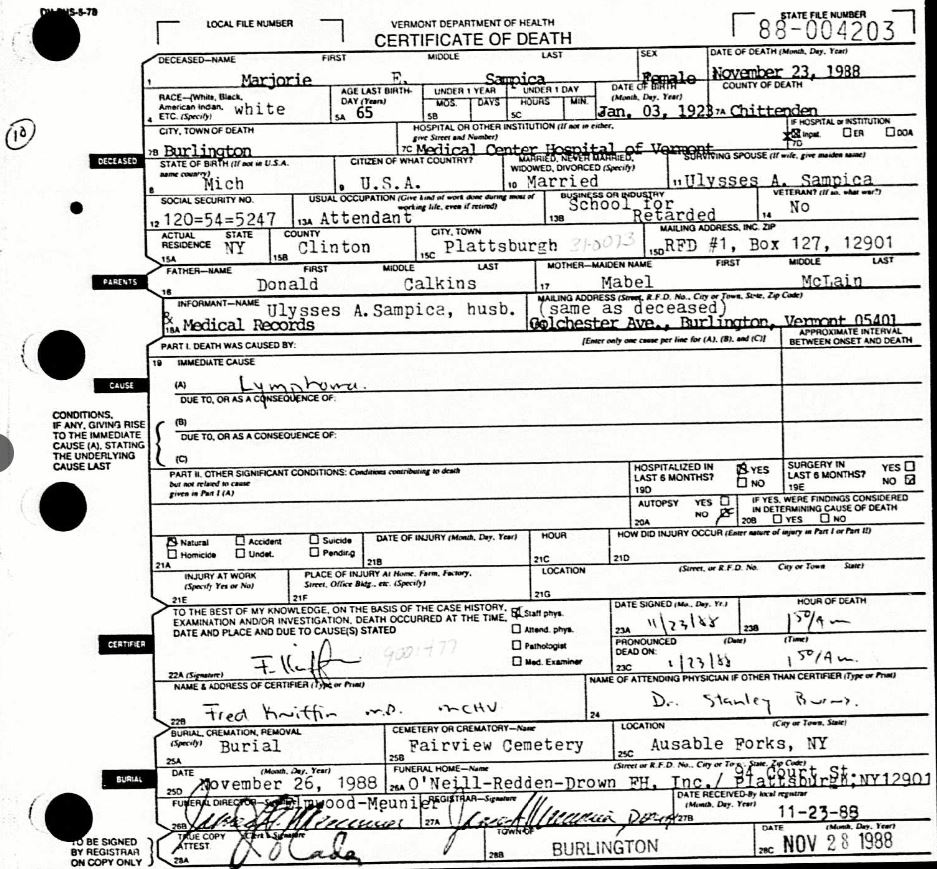 LOCAL FILE NUMBER
VERMONT DEPARTMENT OF HEALTH
CERTIFICATE OF DEATH
STATE FILE NUMBER
88-004203
DECEASED—NAME FIRST MIDDLE LAST SEX DATE OF DEATH (Month, Day, Year)
1 Marjorie E. Sampica Female November 23, 1988
RACE—(White, Black, American Indian, ETC. (Specify) AGE LAST BIRTHDAY (Years) UNDER 1 YEAR UNDER 1 DAY DATE OF BIRTH (Month, Day, Year) COUNTY OF DEATH
MOS. DAYS HOURS MIN.
4 white 5A 65 5B 5C Jan. 03, 1923 7A Chittenden
CITY, TOWN OF DEATH HOSPITAL OR OTHER INSTITUTION (If not in either, give Street and Number) IF HOSPITAL or INSTITUTION
7B Burlington 7C Medical Center Hospital of Vermont 7D Inpat. ER DOA
DECEASED
STATE OF BIRTH (If not in U.S.A. name country) CITIZEN OF WHAT COUNTRY? MARRIED, NEVER MARRIED, WIDOWED, DIVORCED (Specify) SURVIVING SPOUSE (If wife, give maiden name)
8 Mich 9 U.S.A. 10 Married 11 Ulysses A. Sampica
SOCIAL SECURITY NO. USUAL OCCUPATION (Give kind of work done during most of working life, even if retired) BUSINESS OR INDUSTRY VETERAN? (If so, what war?)
12 120=54=5247 13A Attendant 13B School for Retarded 14 No
ACTUAL RESIDENCE STATE COUNTY CITY, TOWN MAILING ADDRESS, INC. ZIP
15A NY 15B Clinton 15C Plattsburgh 15D RFD #1, Box 127, 12901
PARENTS
FATHER—NAME FIRST MIDDLE LAST MOTHER—MAIDEN NAME FIRST MIDDLE LAST
16 Donald Calkins 17 Mabel McLain
INFORMANT—NAME Ulysses A.Sampica, husb. MAILING ADDRESS (Street, R.F.D. No., City or Town, State, Zip Code) (same as deceased)
18A Medical Records Colchester Ave., Burlington, Vermont 05401
PART I. DEATH WAS CAUSED BY: [Enter only one cause per line for (A), (B), and (C)] APPROXIMATE INTERVAL BETWEEN ONSET AND DEATH
19 IMMEDIATE CAUSE
CAUSE
(A) Lymphoma.
DUE TO, OR AS A CONSEQUENCE OF:
CONDITIONS, IF ANY, GIVING RISE TO THE IMMEDIATE CAUSE (A), STATING THE UNDERLYING CAUSE LAST
(B)
DUE TO, OR AS A CONSEQUENCE OF:
(C)
PART II. OTHER SIGNIFICANT CONDITIONS: Conditions contributing to death but not related to cause given in Part I (A)
HOSPITALIZED IN LAST 6 MONTHS? YES NO 19D
SURGERY IN LAST 6 MONTHS? YES NO 19E
AUTOPSY YES NO 20A
IF YES, WERE FINDINGS CONSIDERED IN DETERMINING CAUSE OF DEATH 20B YES NO
Natural Accident Suicide DATE OF INJURY (Month, Day, Year) HOUR HOW DID INJURY OCCUR (Enter nature of injury in Part I or Part II)
Homicide Undet. Pending
21A 21B 21C 21D
INJURY AT WORK (Specify Yes or No) PLACE OF INJURY At Home, Farm, Factory, Street, Office Bldg., etc. (Specify) LOCATION (Street, or R.F.D. No. City or Town State)
21E 21F 21G
CERTIFIER
TO THE BEST OF MY KNOWLEDGE, ON THE BASIS OF THE CASE HISTORY, EXAMINATION AND/OR INVESTIGATION, DEATH OCCURRED AT THE TIME, DATE AND PLACE AND DUE TO CAUSE(S) STATED
Staff phys.
Attend. phys.
Pathologist
Med. Examiner
DATE SIGNED (Mo., Day, Yr.) HOUR OF DEATH
23A 11/23/88 23B
PRONOUNCED DEAD ON: (Date) (Time)
23C 1/23/88
22A (Signature)
NAME & ADDRESS OF CERTIFIER (Type or Print) NAME OF ATTENDING PHYSICIAN IF OTHER THAN CERTIFIER (Type or Print)
22B Fred Kniffin M.D. MCHV 24 Dr. Stanley Burns.
BURIAL
BURIAL, CREMATION, REMOVAL (Specify) CEMETERY OR CREMATORY—Name LOCATION (City or Town, State)
25A Burial 25B Fairview Cemetery 25C Ausable Forks, NY
DATE (Month, Day, Year) FUNERAL HOME—Name (Street or R.F.D. No., City or Town, State, Zip Code)
25D November 26, 1988 26A O'Neill-Redden-Drown FH, Inc./ 94 Court St. Plattsburgh,NY12901
FUNERAL DIRECTOR Elmwood-Meunier REGISTRAR—Signature DATE RECEIVED By local registrar (Month, Day, Year)
26B 27A 27B 11-23-88
TO BE SIGNED BY REGISTRAR ON COPY ONLY
TRUE COPY ATTEST. Clerk's Signature TOWN OF DATE (Month, Day, Year)
28A 28B BURLINGTON 28C NOV 28 1988